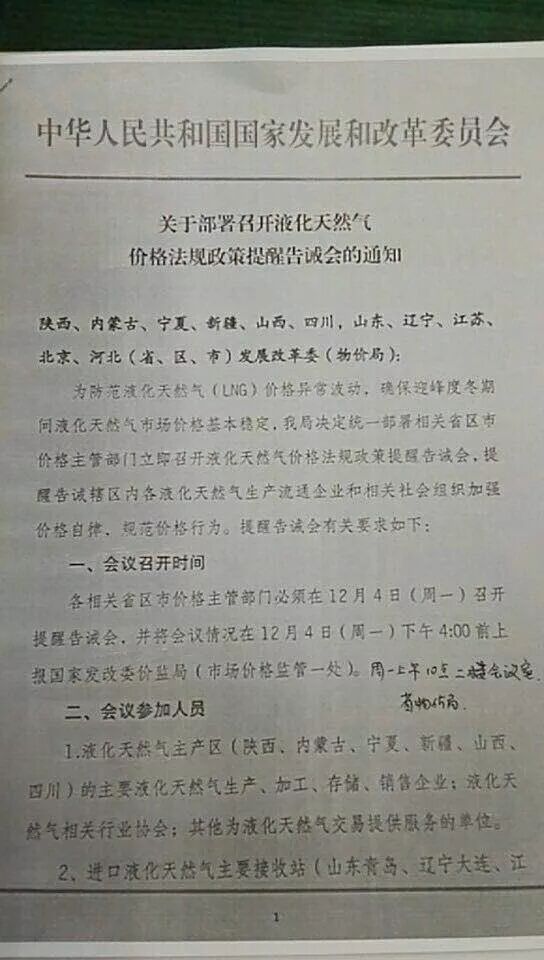 中华人民共和国国家发展和改革委员会
关于部署召开液化天然气
价格法规政策提醒告诫会的通知
陕西、内蒙古、宁夏、新疆、山西、四川，山东、辽宁、江苏、
北京、河北（省、区、市）发展改革委（物价局）：
为防范液化天然气（LNG）价格异常波动，确保迎峰度冬期
间液化天然气市场价格基本稳定，我局决定统一部署相关省区市
价格主管部门立即召开液化天然气价格法规政策提醒告诫会，提
醒告诫辖区内各液化天然气生产流通企业和相关社会组织加强
价格自律，规范价格行为。提醒告诫会有关要求如下：
一、会议召开时间
各相关省区市价格主管部门必须在12月4日（周一）召开
提醒告诫会，并将会议情况在12月4日（周一）下午4:00前上
报国家发改委价监局（市场价格监管一处）。周一上午10点二楼会议室
省物价局.
二、会议参加人员
1.液化天然气主产区（陕西、内蒙古、宁夏、新疆、山西、
四川）的主要液化天然气生产、加工、存储、销售企业；液化天
然气相关行业协会；其他为液化天然气交易提供服务的单位。
2、进口液化天然气主要接收站（山东青岛、辽宁大连、江
1